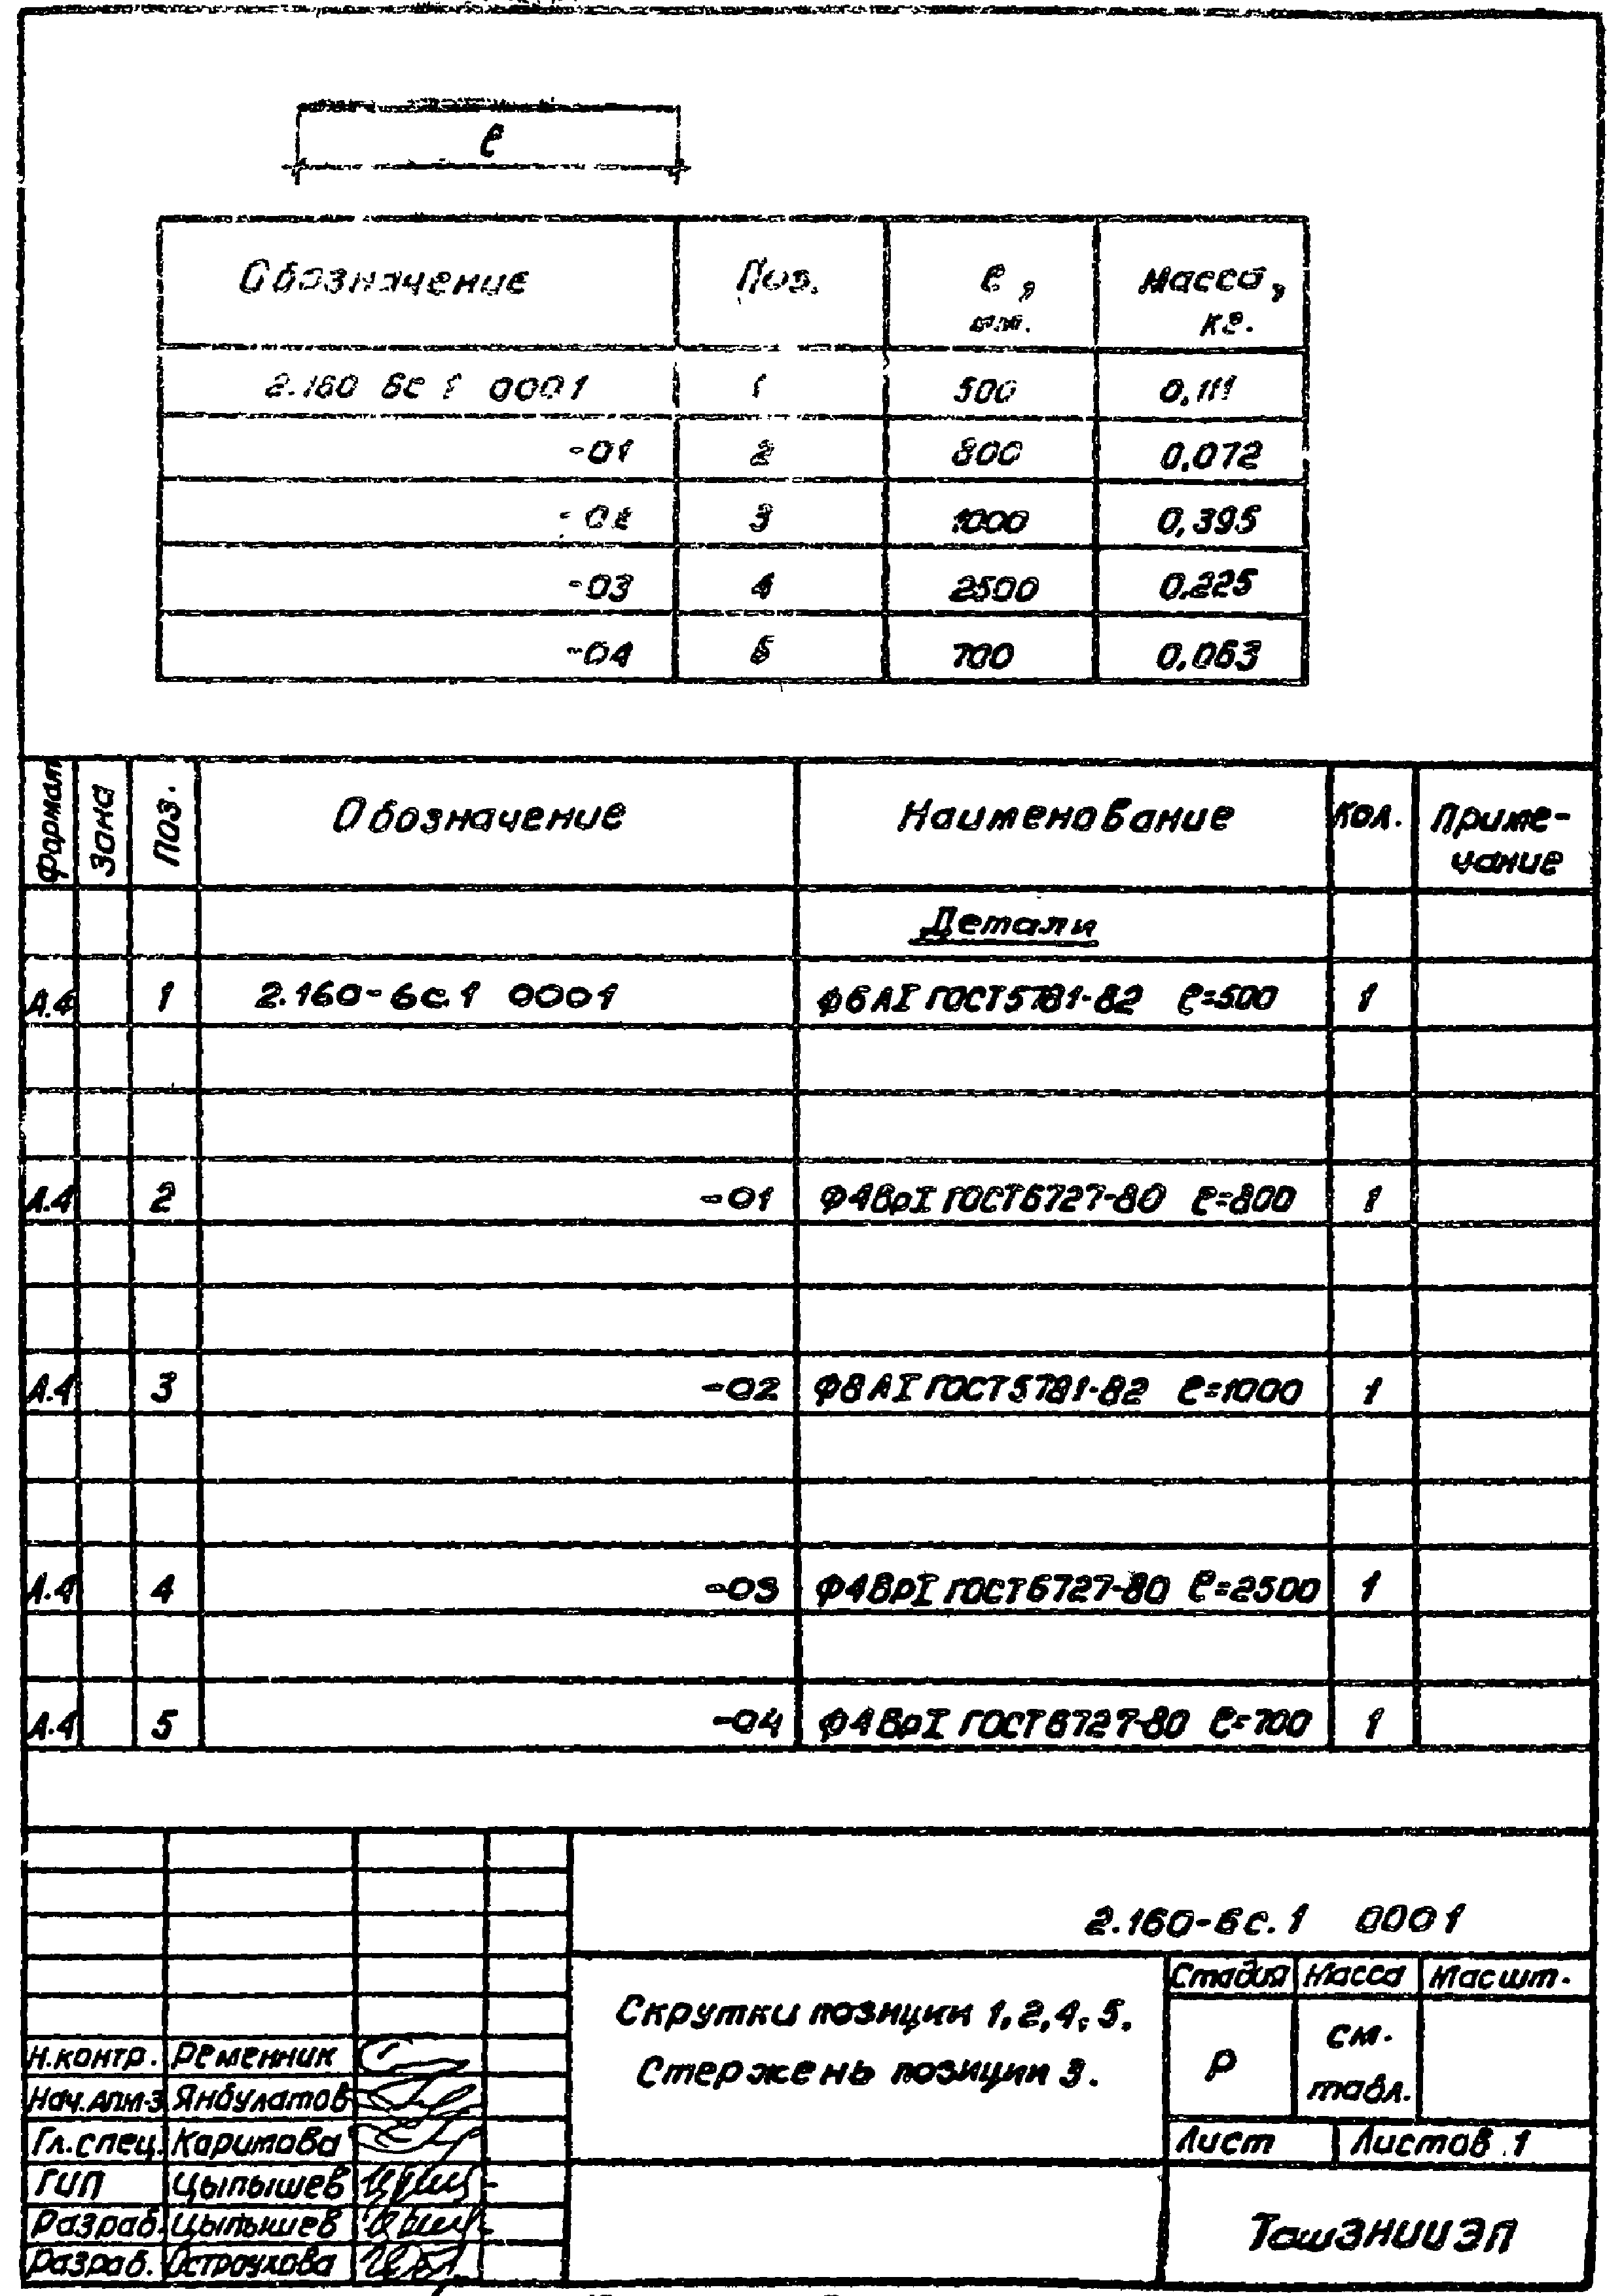 ℓ
Обозначение Поз. ℓ, мм. Масса, кг.
2.160 6с 1 0001 1 500 0,111
-01 2 800 0,072
-02 3 1000 0,395
-03 4 2500 0,225
-04 5 700 0,063
Формат Зона Поз. Обозначение Наименование Кол. Приме-
чание
Детали
А.4 1 2.160-6с.1 0001 Ф6АI ГОСТ5781-82 ℓ=500 1
А.4 2 -01 Ф4ВрI ГОСТ6727-80 ℓ=800 1
А.4 3 -02 Ф8АI ГОСТ5781-82 ℓ=1000 1
А.4 4 -03 Ф4ВрI ГОСТ6727-80 ℓ=2500 1
А.4 5 -04 Ф4ВрI ГОСТ6727-80 ℓ=700 1
2.160-6с.1 0001
Скрутки позиции 1,2,4,5.
Стержень позиции 3.
Стадия Масса Масшт.
Р см.
табл.
Лист Листов 1
ТашЗНИИЭП
Н.контр. Ременник
Нач.АПМ-3 Янбулатов
Гл.спец. Каримова
ГИП Цыпышев
Разраб. Цыпышев
Разраб. Остроухова